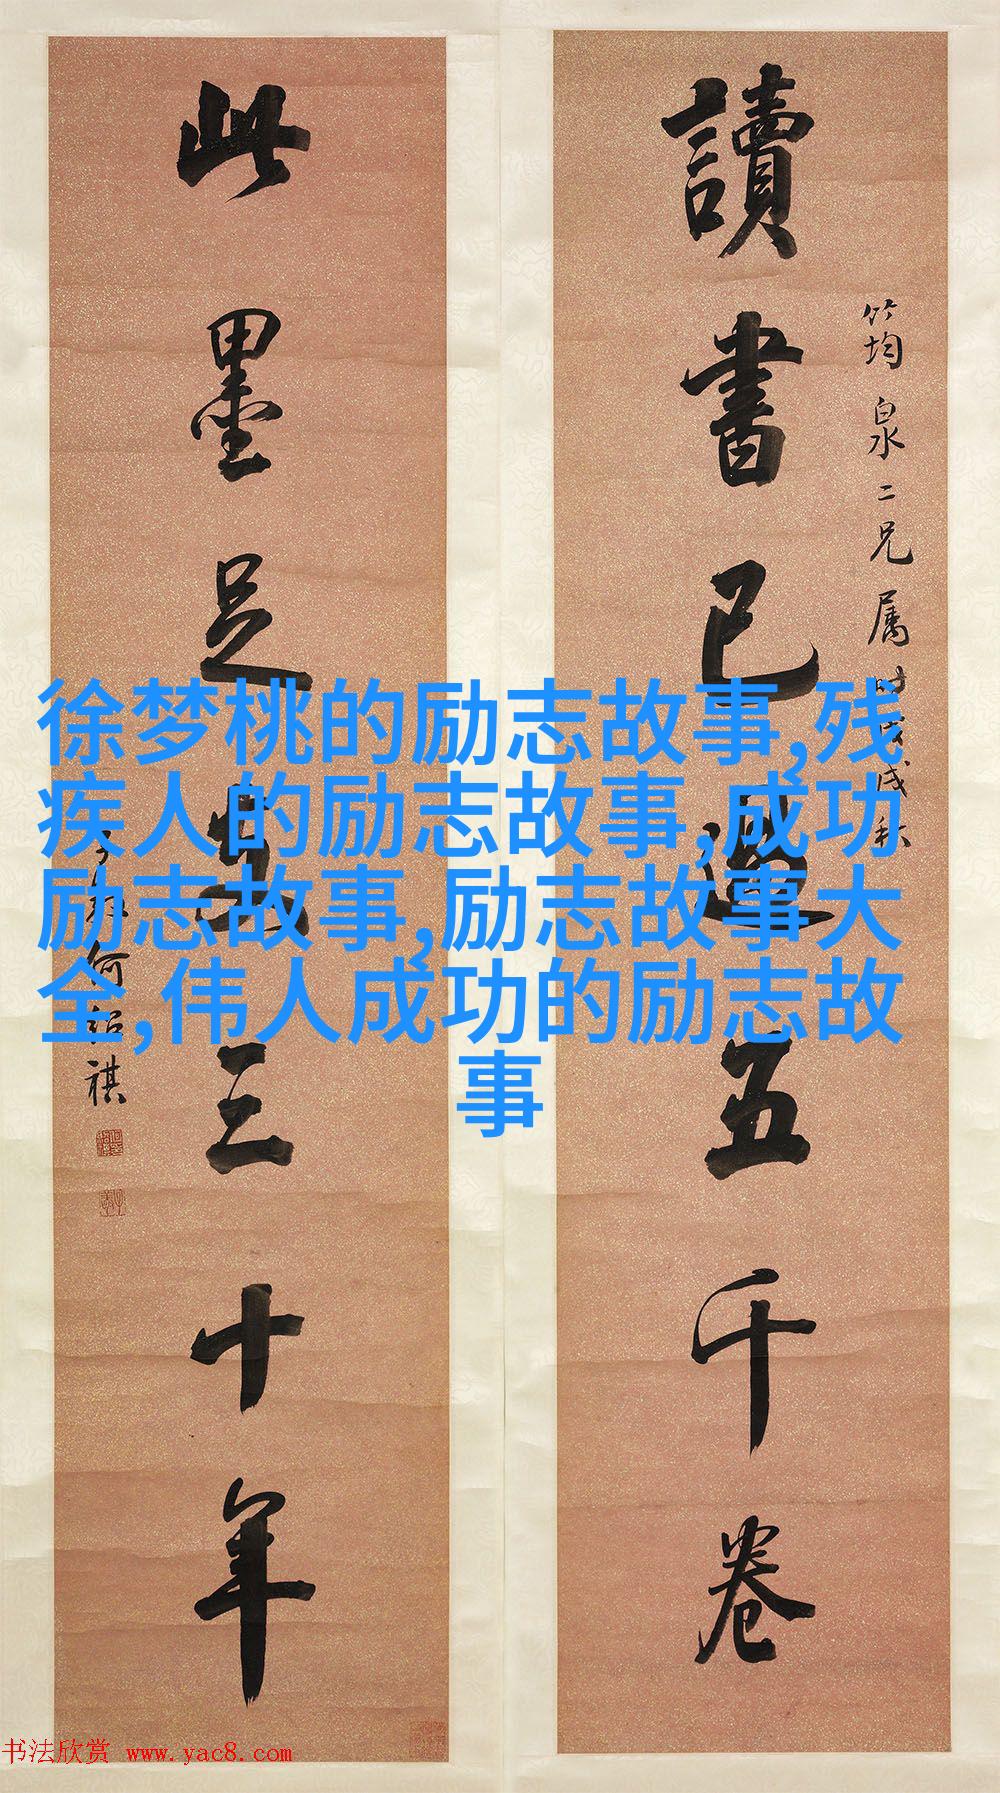 讀書已過五千卷
竹均泉二兄属
此墨足支三十年
何紹祺
徐梦桃的励志故事,残
疾人的励志故事,成功
励志故事,励志故事大
全,伟人成功的励志故
事
书法欣赏 www.yac8.com